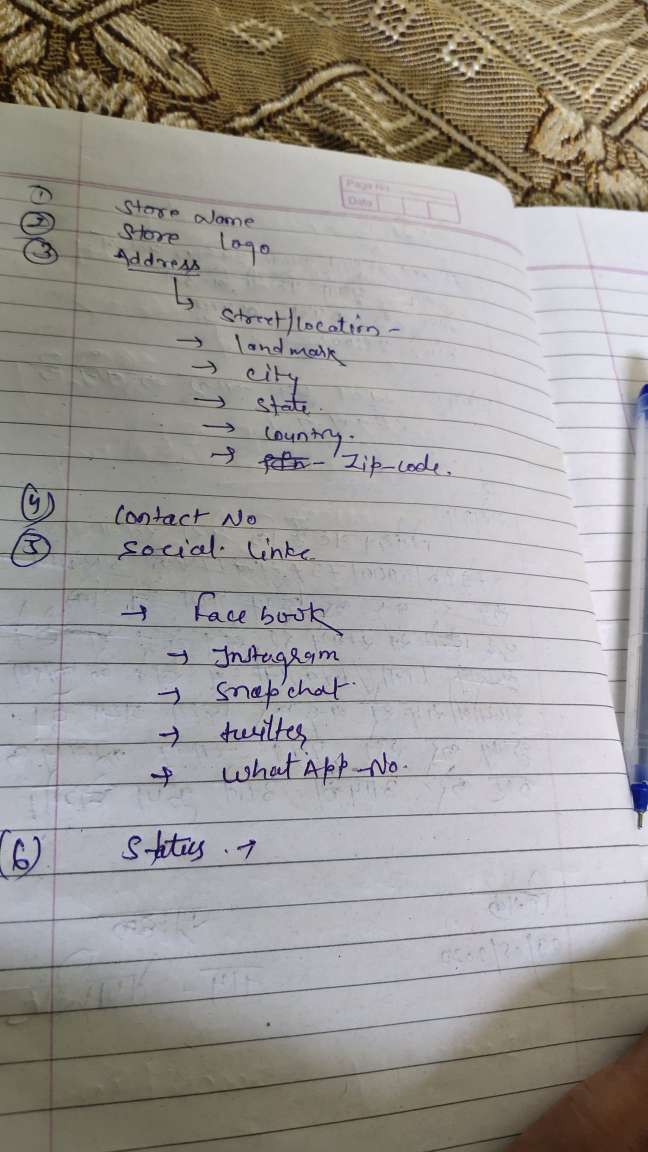 Page No.
Date
① Store Name
② Store Logo
③ Address
↳ Street/location -
→ landmark
→ City
→ State.
→ Country.
→ Zip-code.
④ Contact No
⑤ Social. links
→ Facebook
→ Instagram
→ Snapchat.
→ twitter
→ WhatApp-No.
(6) Status . →